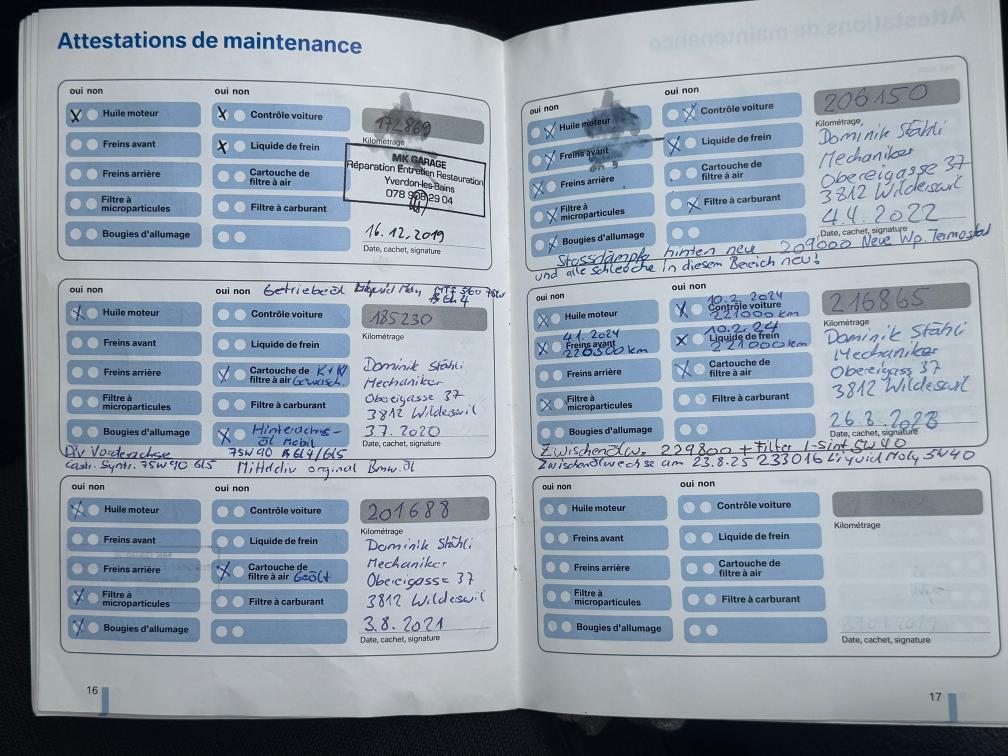 Attestations de maintenance
oui non
oui non
Huile moteur
Contrôle voiture
172869
Kilométrage
Freins avant
Liquide de frein
MK GARAGE
Réparation Entretien Restauration
Yverdon-les-Bains
078 908 29 04
Freins arrière
Cartouche de
filtre à air
Filtre à
microparticules
Filtre à carburant
Bougies d'allumage
16.12.2019
Date, cachet, signature
oui non
oui non
Getriebeöl Liquid Moly MTF 560 75W
GL4
Huile moteur
Contrôle voiture
185230
Kilométrage
Freins avant
Liquide de frein
Dominik Stähli
Mechaniker
Obereigasse 37
3812 Wilderswil
Freins arrière
Cartouche de K+N
filtre à air Gewasch.
Filtre à
microparticules
Filtre à carburant
Bougies d'allumage
Hinterachs-
öl Mobil
3.7.2020
Date, cachet, signature
Div Vorderachse
75W90 GL4/GL5
Castr. Syntr. 75W90 GL5
Mitteldiv orginal Bmw.öl
oui non
oui non
Huile moteur
Contrôle voiture
201688
Kilométrage
Freins avant
Liquide de frein
Dominik Stähli
Mechaniker
Obereigasse 37
3812 Wilderswil
Freins arrière
Cartouche de
filtre à air Geölt
Filtre à
microparticules
Filtre à carburant
Bougies d'allumage
3.8.2021
Date, cachet, signature
16
oui non
oui non
Huile moteur
Contrôle voiture
206150
Kilométrage
Freins avant
Liquide de frein
Dominik Stähli
Mechaniker
Obereigasse 37
3812 Wilderswil
Freins arrière
Cartouche de
filtre à air
Filtre à
microparticules
Filtre à carburant
Bougies d'allumage
4.4.2022
Date, cachet, signature
Stossdämpfe hinten neu 209000 Neue Wp. Termostat
und alle schleuche in diesem Bereich neu!
oui non
oui non
Huile moteur
10.2.2024
Contrôle voiture
221000km
216865
Kilométrage
4.1.2024
Freins avant
220500km
10.2.24
Liquide de frein
221000km
Dominik Stähli
Mechaniker
Obereigass 37
3812 Wilderswil
Freins arrière
Cartouche de
filtre à air
Filtre à
microparticules
Filtre à carburant
Bougies d'allumage
Date, cachet, signature
Zwischenölw. 229800 + Filter 1-Sint 5W40
Zwischenölwechse am 23.8.25 233016 Liquid Moly 5W40
oui non
oui non
Huile moteur
Contrôle voiture
Kilométrage
Freins avant
Liquide de frein
Freins arrière
Cartouche de
filtre à air
Filtre à
microparticules
Filtre à carburant
Bougies d'allumage
Date, cachet, signature
17